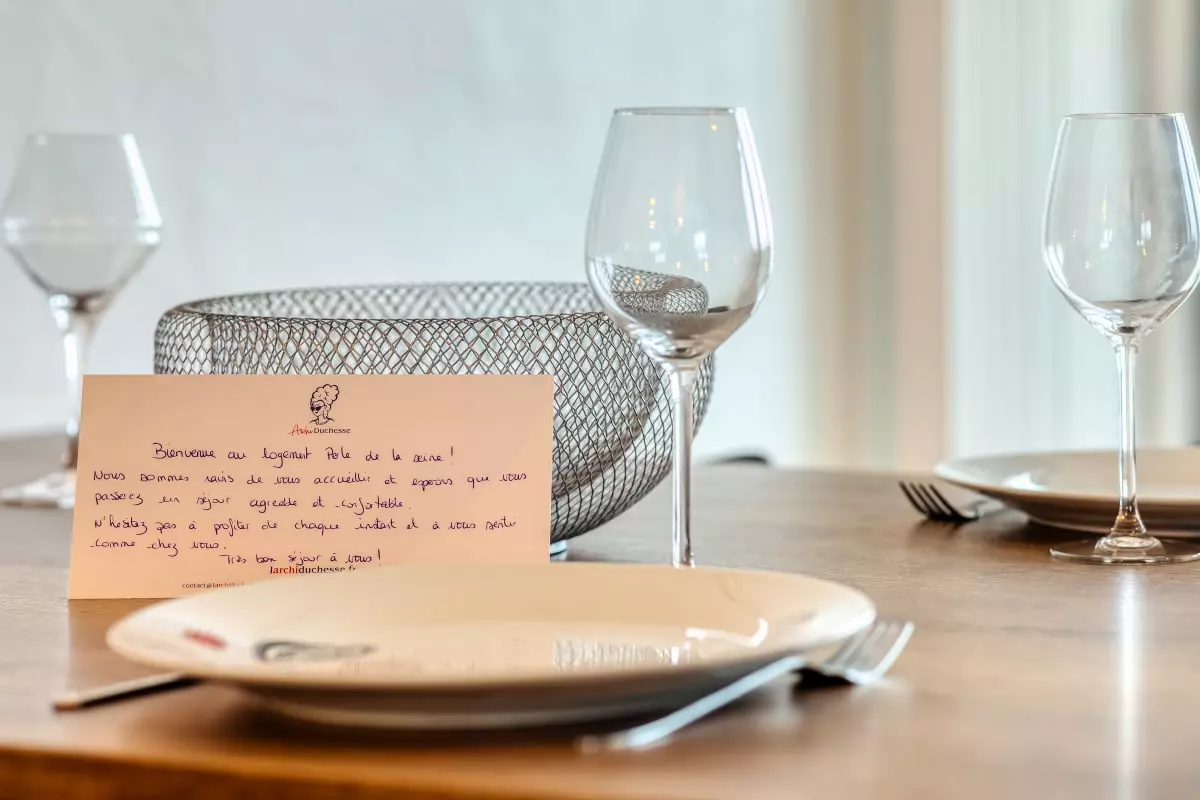 ArchiDuchesse
Bienvenue au logement Perle de la seine !
Nous sommes ravis de vous accueillir et espérons que vous
passerez un séjour agréable et confortable.
N'hésitez pas à profiter de chaque instant et à vous sentir
comme chez vous.
Très bon séjour à vous !
larchiduchesse.fr